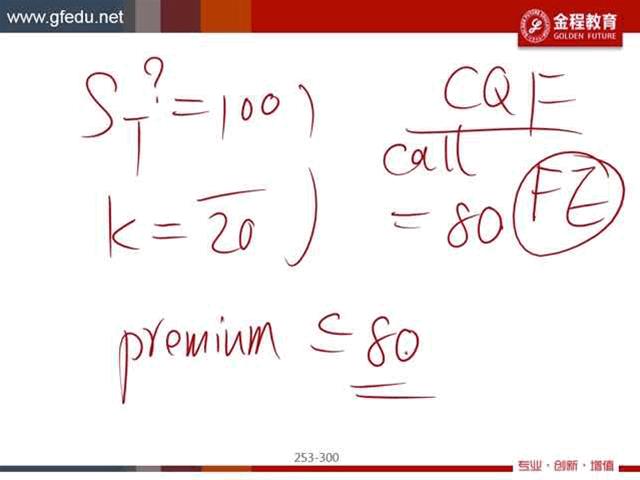 www.gfedu.net
金程教育
GOLDEN FUTURE
S_T ? = 100
CQF
call
K = 20
= 80
FE
premium ≤ 80
253-300
专业·创新·增值